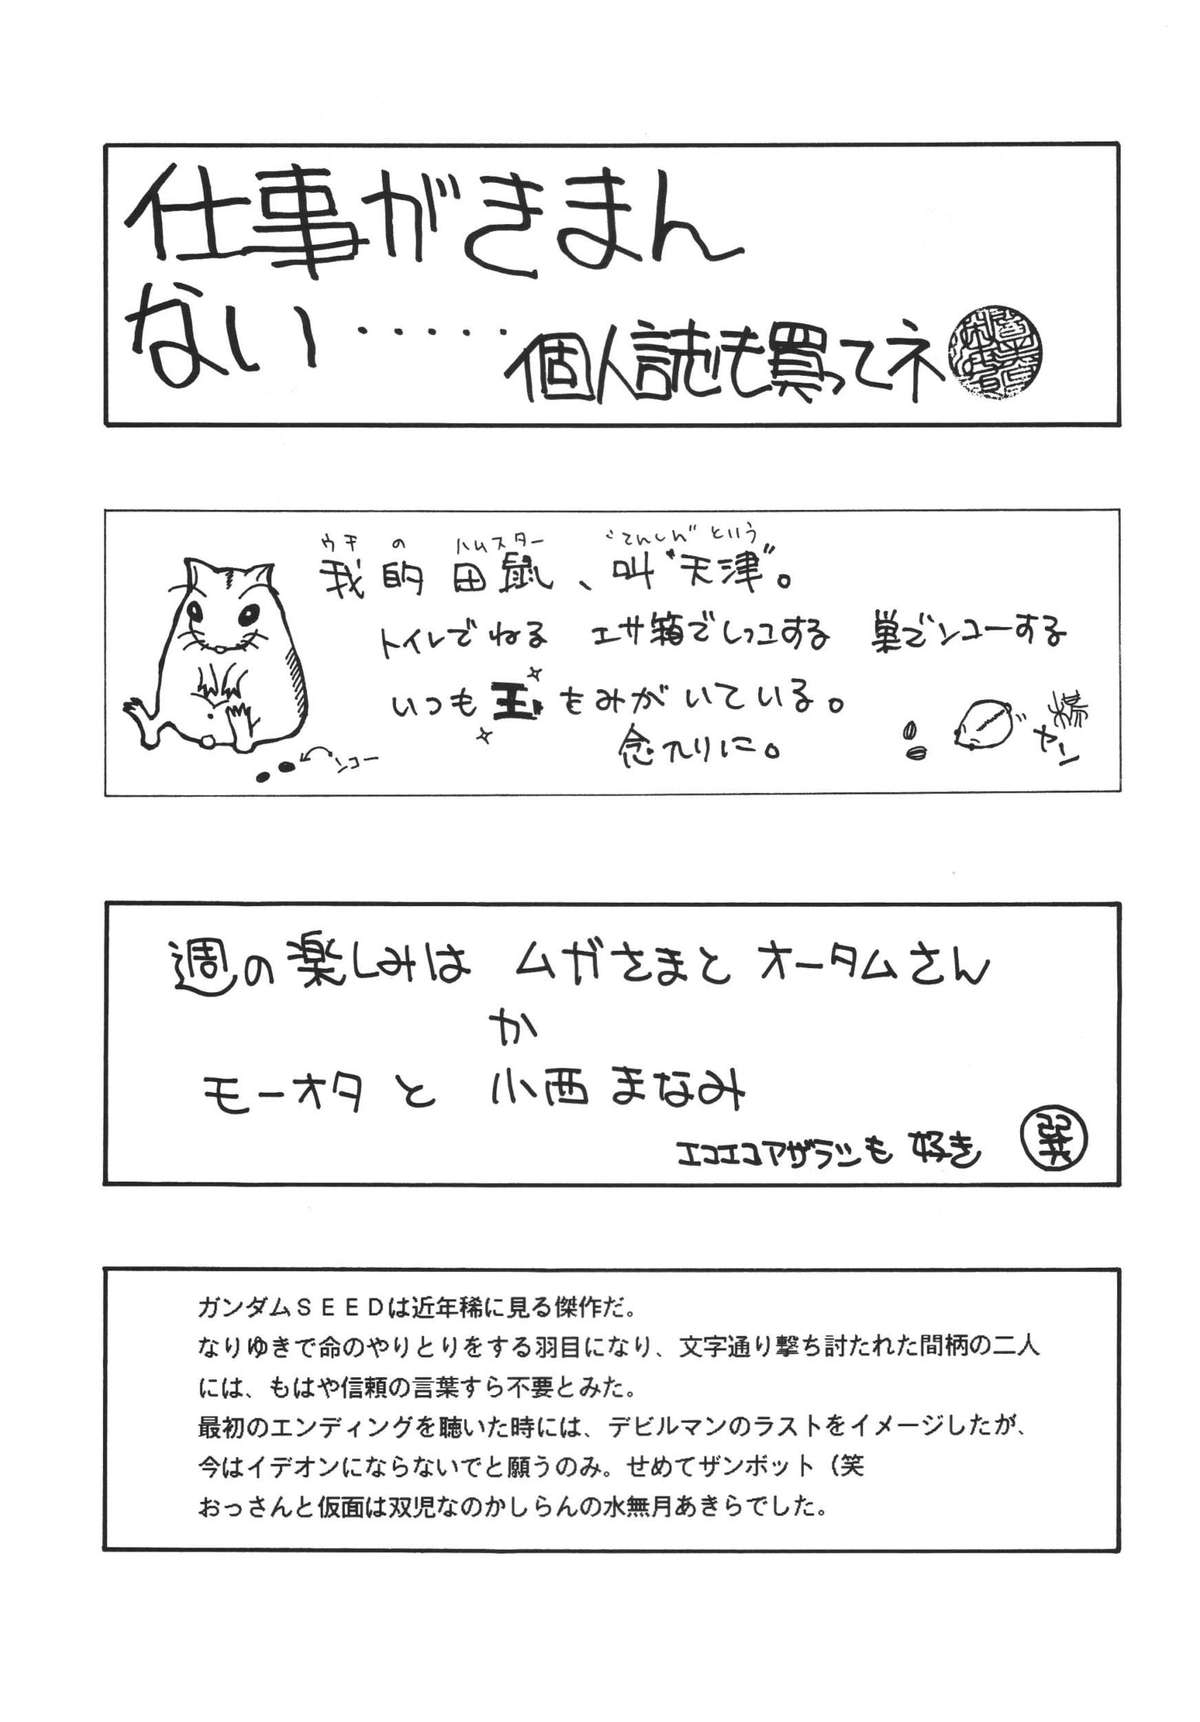 仕事がきまん
ない・・・・・・個人誌も買ってネ
ウチ の ハムスター “てんしん”という
我的田鼠、叫“天津”。
トイレでねる エサ箱でしっこする 巣でンコーする
いつも玉をみがいている。
念入りに。
ンコー
楊
ヤン
週の楽しみは ムガさまと オータムさん
か
モーオタと 小西まなみ
エコエコアザラシも 好き
巽
ガンダムＳＥＥＤは近年稀に見る傑作だ。
なりゆきで命のやりとりをする羽目になり、文字通り撃ち討たれた間柄の二人
には、もはや信頼の言葉すら不要とみた。
最初のエンディングを聴いた時には、デビルマンのラストをイメージしたが、
今はイデオンにならないでと願うのみ。せめてザンボット（笑
おっさんと仮面は双児なのかしらんの水無月あきらでした。